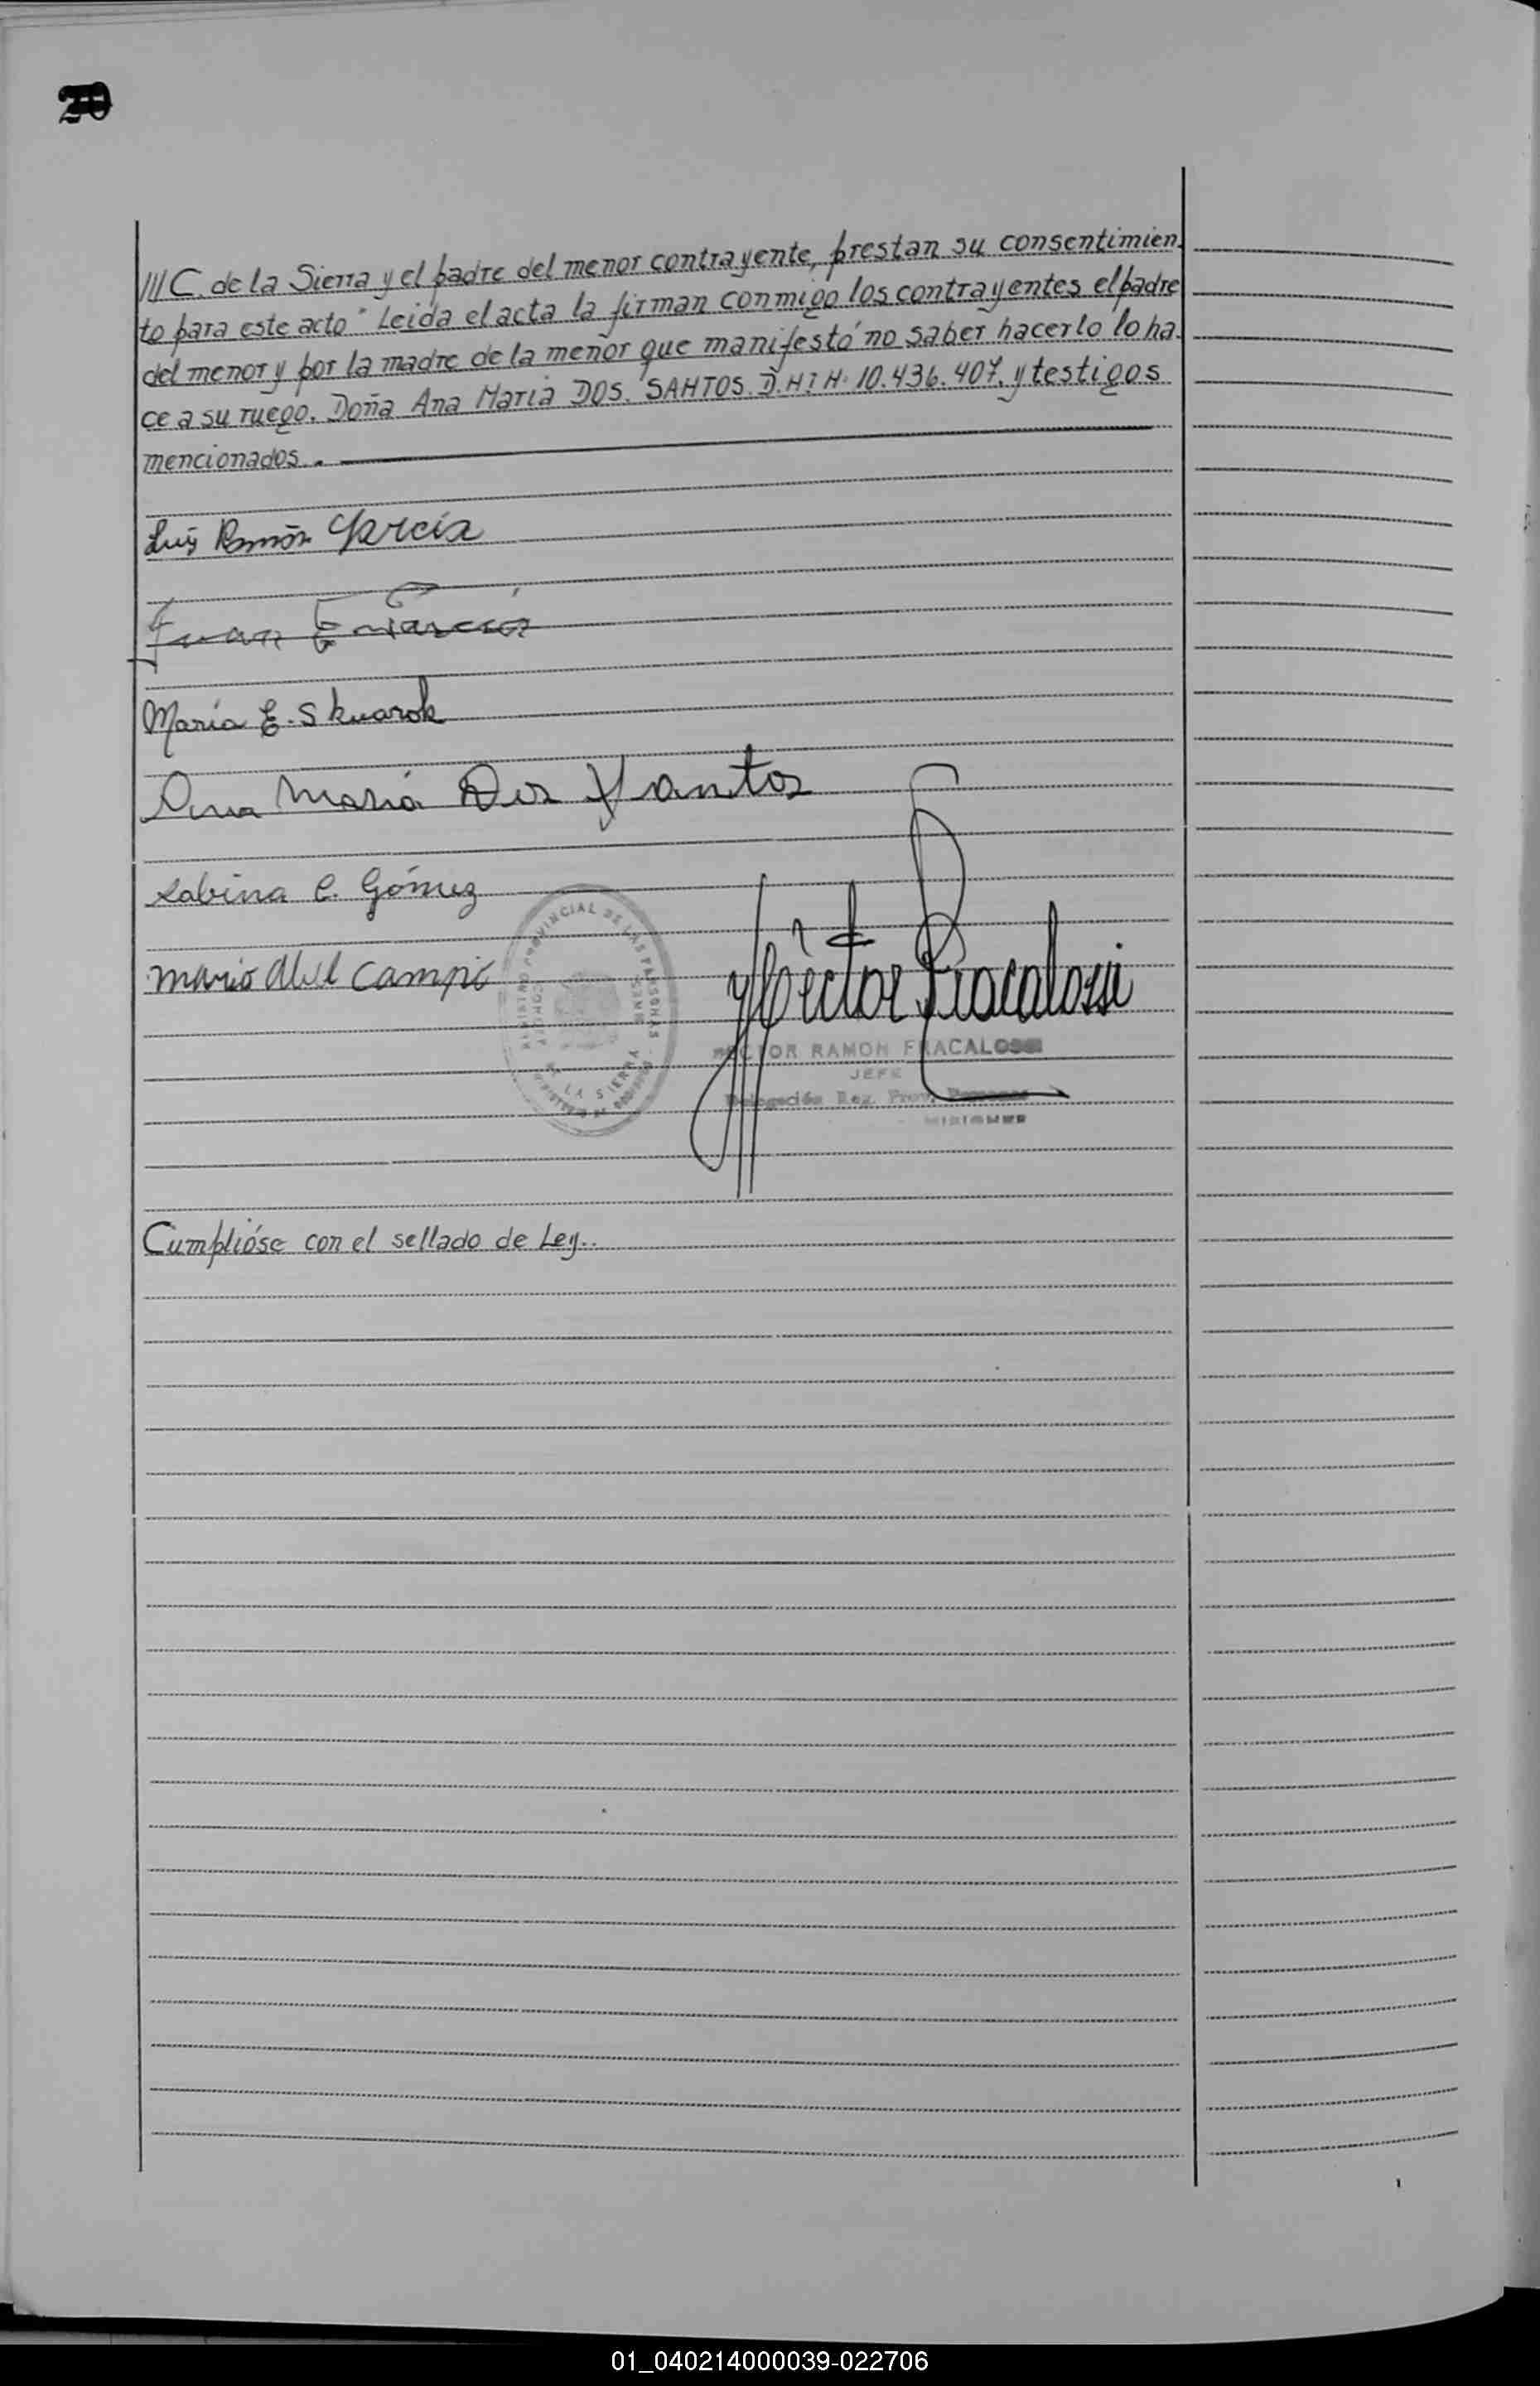 20
///C. de la Sierra y el padre del menor contrayente, prestan su consentimien-
to para este acto" Leida el acta la firman conmigo los contrayentes el padre
del menor y por la madre de la menor que manifestó no saber hacerlo lo ha-
ce a su ruego. Doña Ana Maria DOS. SANTOS. D.N.I N. 10.436.407. y testigos
mencionados..
Luis Ramón García
Juan E García
María E. Skuarok
Ana María Dos Santos
Sabina C. Gómez
Mario Abel Campi
Héctor Fracalossi
PROVINCIAL DE LAS PERSONAS
DE LA SIERRA
HECTOR RAMON FRACALOSSI
JEFE
Delegación Reg. Prov. Personas
MISIONES
Cumplióse con el sellado de Ley..
01_040214000039-022706